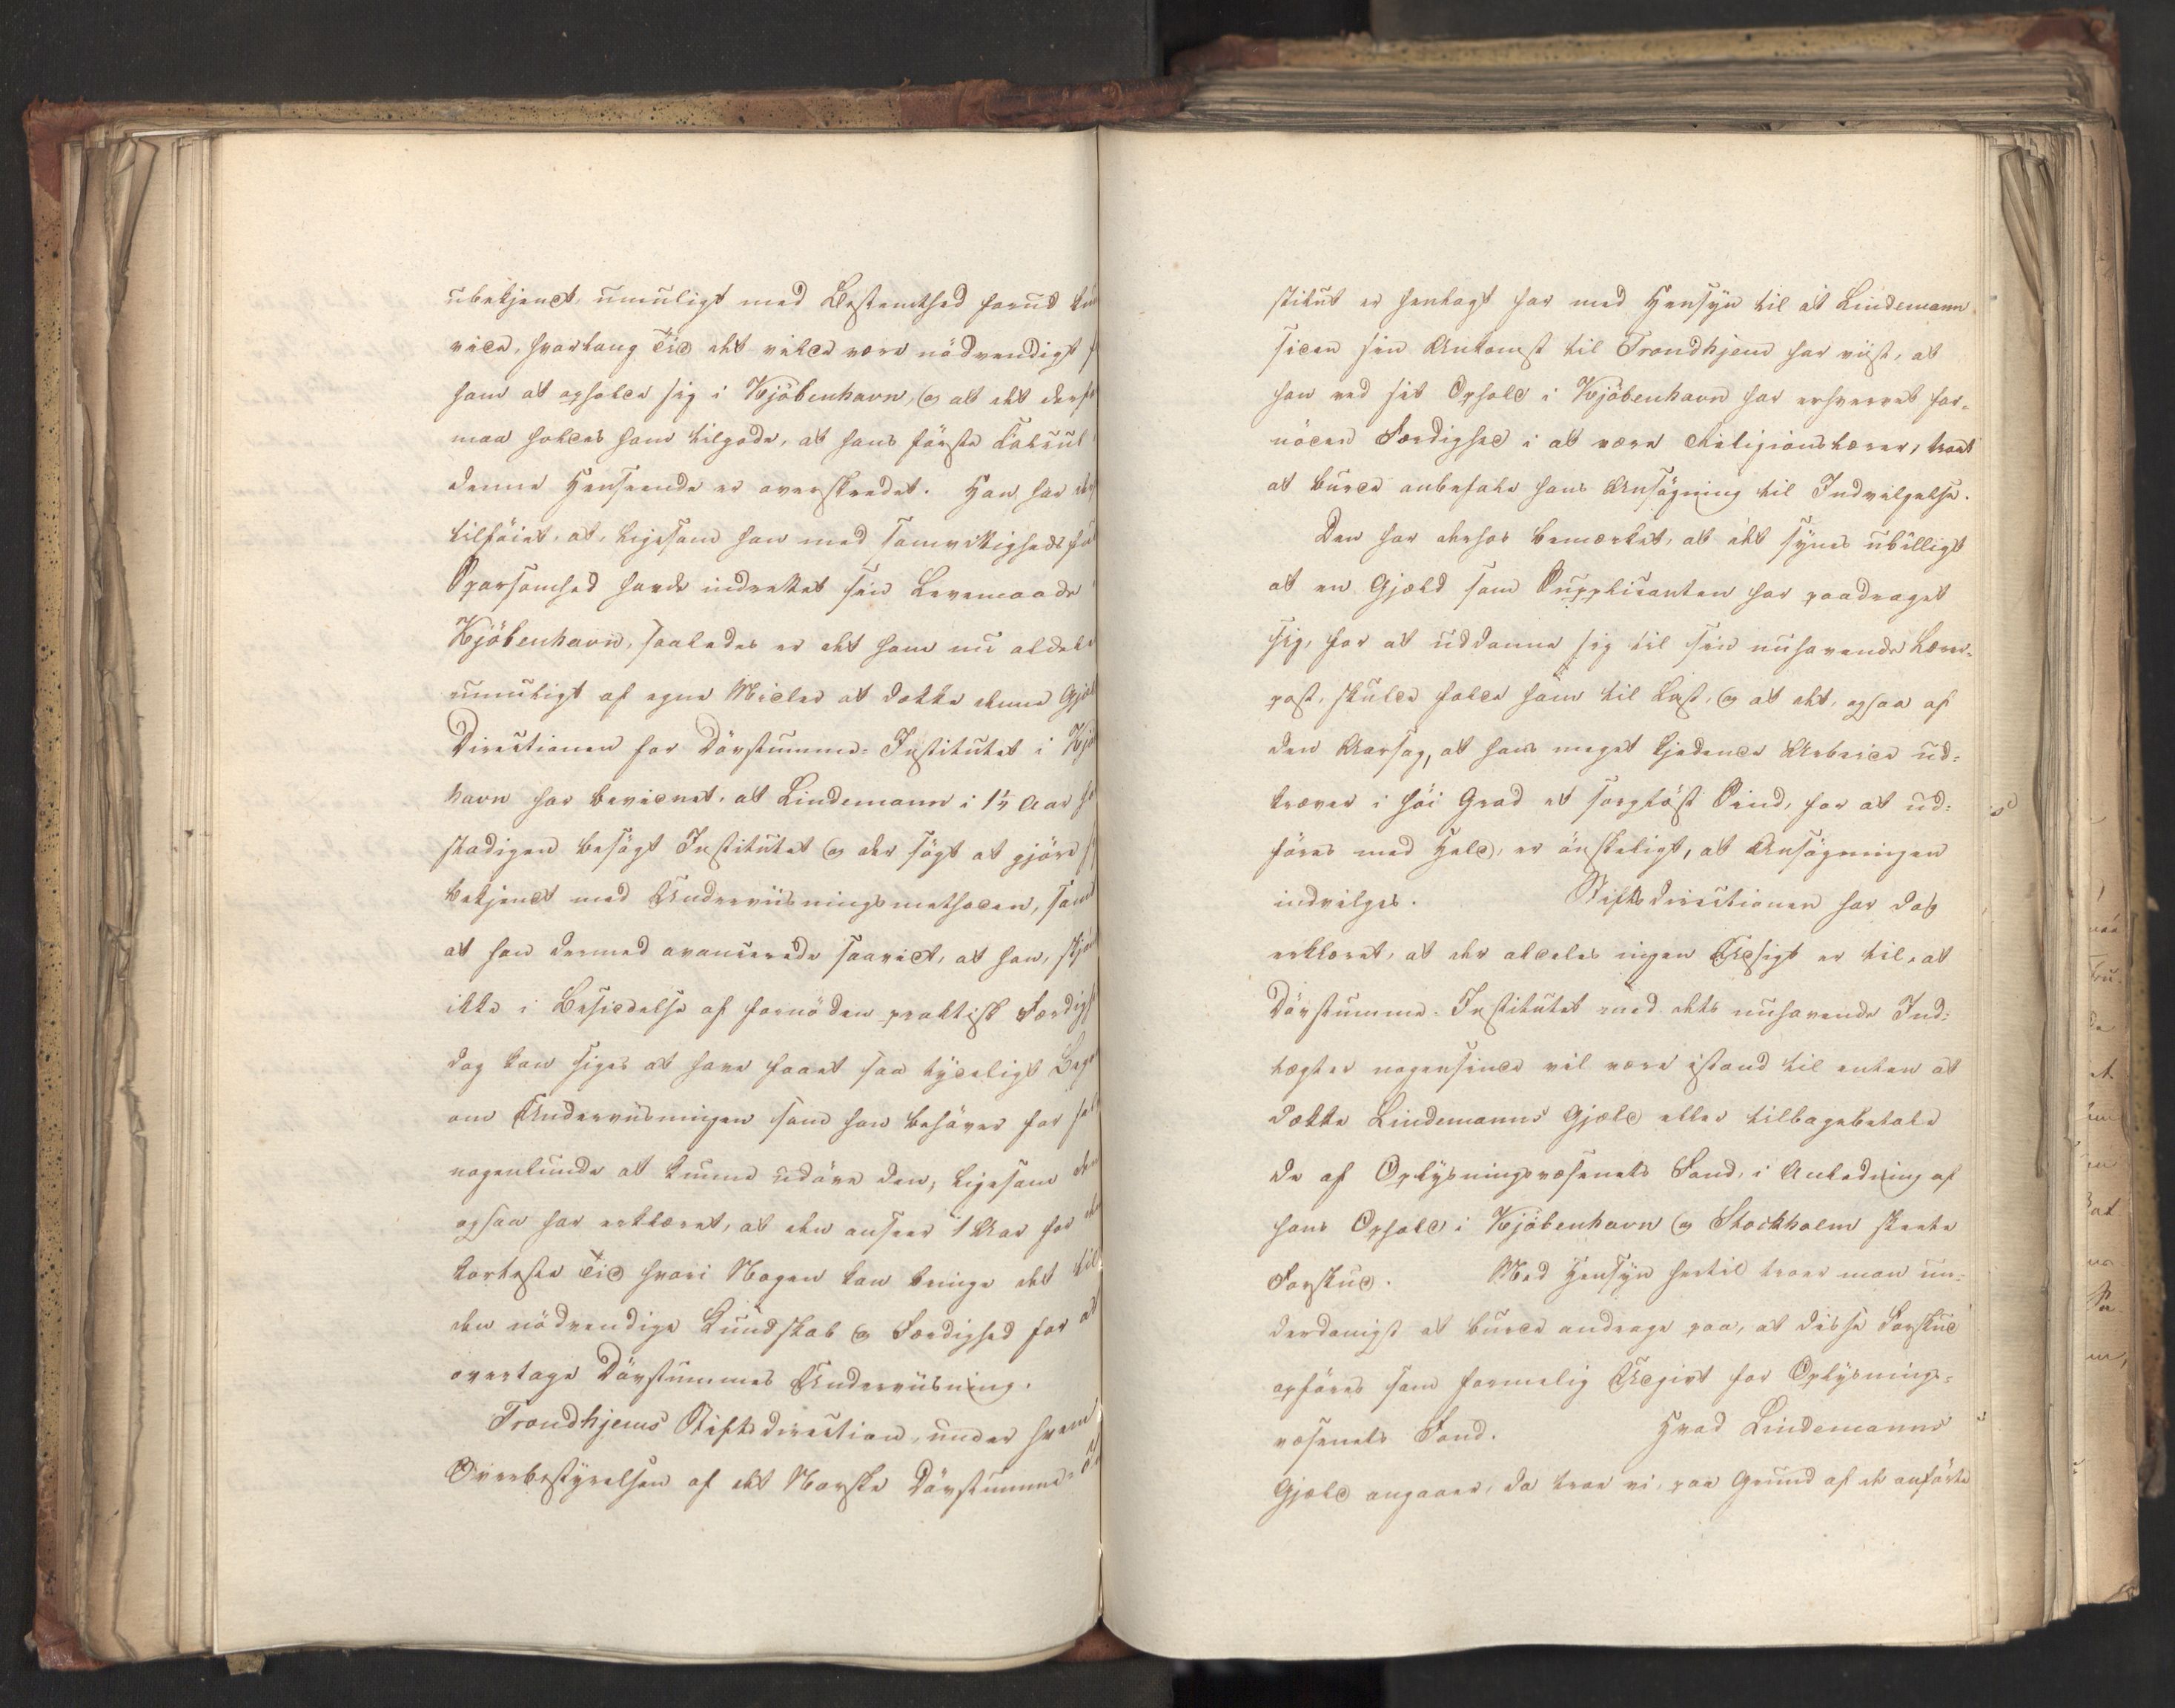 ubekjendt, umuligt med Bestemthed forud
vide, hvorlang Tid det vilde være nødvendigt
ham at opholde sig i Kjöbenhavn, og at det
maa holdes ham tilgode, at hans förste Calcul
denne Henseende er overskredet. Han har
tilföiet, at, ligesom han med
Sparsomhed havde indrettet sin Levemaade
Kjöbenhavn, saaledes er det ham nu
umuligt af egne Midler at dække denne
Directionen for Dövstumme-Institutet i
havn har bevidnet, at Lindemann i 1½ Aar
stadigen besögt Institutet og der sögt at gjöre
bekjendt med Underviisningsmethoden, samt
at han dermed avancerede saavidt, at han,
ikke i Besiddelse af fornöden praktisk
dog kan siges at have faaet saa tydeligt
om Underviisningen som han behöver for
nogenlunde at kunne udöve den, ligesom den
ogsaa har erklæret, at den anseer 1 Aar for
korteste Tid hvori Nogen kan bringe det til
den nödvendige Kundskab og Færdighed for at
overtage Dövstummes Underviisning.
Trondhjems Stiftsdirection, under hvem
Overbestyrelsen af det Norske Dövstumme-
stitut er henlagt har med Hensyn til at Lindemann
siden sin Ankomst til Trondhjem har viist, at
han ved sit Ophold i Kjöbenhavn har erhvervet for-
nöden Færdighed i at være Religionslærer, troet
at burde anbefale hans Ansögning til Indvilgelse.
Den har derhos bemærket, at det synes ubilligt
at en Gjæld som Supplicanten har paadraget
sig, for at uddanne sig til sin nuhavende Lærer-
post, skulde falde ham til Last, og at det, ogsaa af
den Aarsag, at hans meget kjedende Arbeide ud-
kræver i höi Grad et sorglöst Sind, for at ud-
föres med Held, er önskeligt, at Ansögningen
indvilges. Stiftsdirectionen har dog
erklæret, at der aldeles ingen Udsigt er til, at
Dövstumme-Institutet med dets nuhavende Ind-
tægter nogensinde vil være istand til enten at
dække Lindemanns Gjæld eller tilbagebetale
de af Oplysningsvæsenets Fond, i Anledning af
hans Ophold i Kjöbenhavn og Stockholm skeete
Forskud. Med Hensyn hertil troer man un-
derdanigst at burde andrage paa, at disse Forskud
opföres som formelig Udgivt for Oplysnings-
væsenets Fond. Hvad Lindemanns
Gjæld angaaer, da troe vi, paa Grund af de anförte